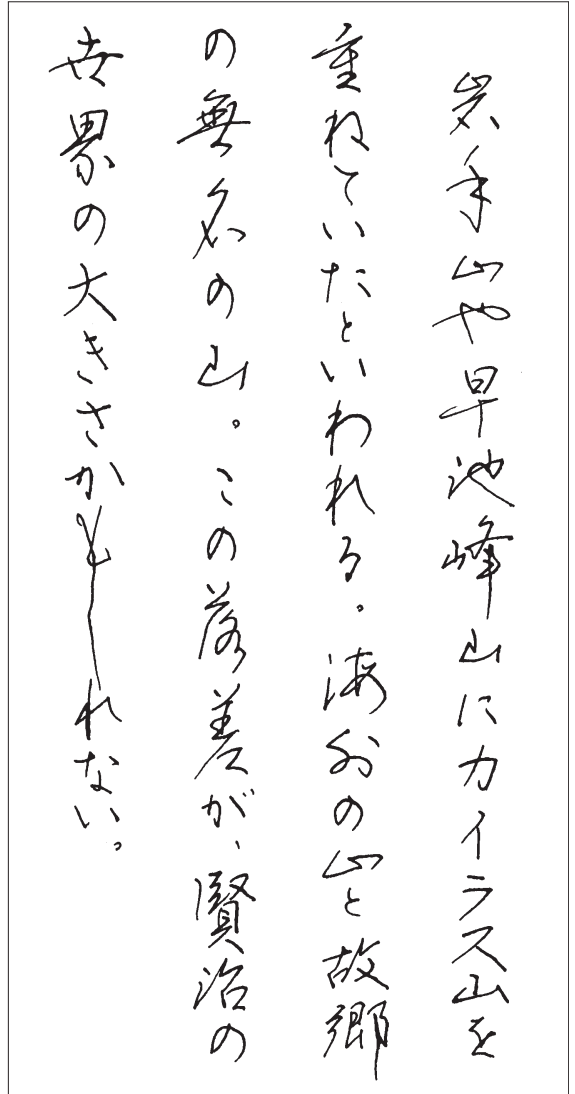 岩手山や早池峰山にカイラス山を
重ねていたといわれる。海外の山と故郷
の無名の山。この落差が、賢治の
世界の大きさかもしれない。